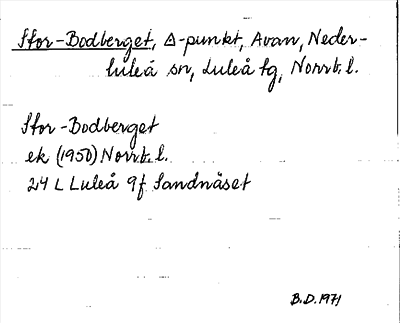 Stor-Bodberget, Δ-punkt, Avan, Neder-
luleå sn, Luleå tg, Norrb. l.
Stor-Bodberget
ek (1950) Norrb. l.
24 L Luleå 9f Sandnäset
B.D. 1971